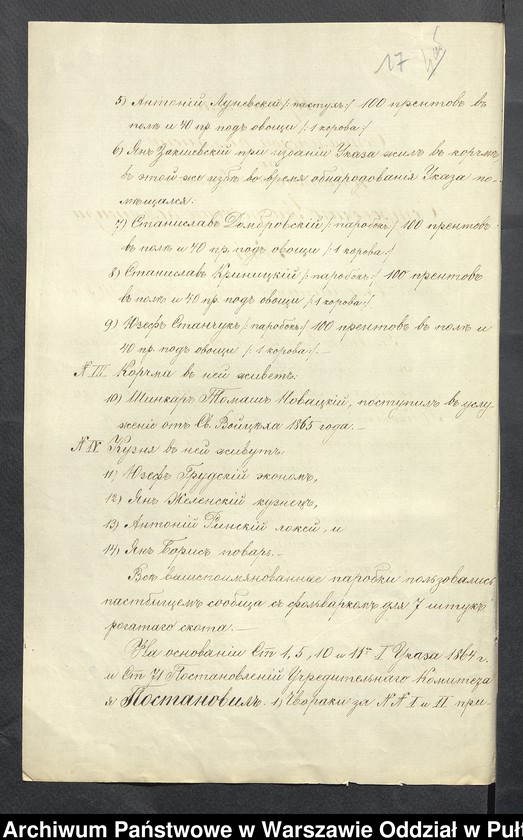 17
5) Антоній Луневскій /: пастухъ :/ 100 прентовъ въ
полѣ и 40 пр. подъ овощи /: 1 корова :/
6) Янъ Закшевскій при изданіи Указа жилъ въ корчмѣ
въ этой-же избѣ во время обнародованія Указа по-
мѣщался.
7) Станиславъ Домбровскій /: паробокъ :/ 100 прентовъ
въ полѣ и 40 пр. подъ овощи /: 1 корова :/
8) Станиславъ Криницкій /: паробокъ :/ 100 прентовъ
въ полѣ и 40 пр. подъ овощи /: 1 корова :/
9) Юзефъ Станчукъ /: паробокъ :/ 100 прентовъ въ полѣ и
40 пр. подъ овощи /: 1 корова :/. —
N III Корчма въ ней живетъ:
10) Шинкарь Томашъ Новацкій, поступилъ въ услу-
женіе отъ Св. Войцѣха 1865 года. —
N IV Кузня въ ней живутъ:
11) Юзефъ Грудскій экономъ,
12) Янъ Желенскій кузнецъ,
13) Антоній Ринскій локей, и
14) Янъ Борисъ поваръ. —
Всѣ вышеспомянованные паробки пользовались
пастбищемъ сообща съ фольваркомъ для 7 штукъ
рогатаго скота. —
На основаніи Ст. 1, 5, 10 и 11й I Указа 1864 г.
и Ст. 71 Постановленій Учредительнаго Комитета
я Постановилъ. 1) Чвораки за N N I и II при-
Archiwum Państwowe w Warszawie Oddział w Puł